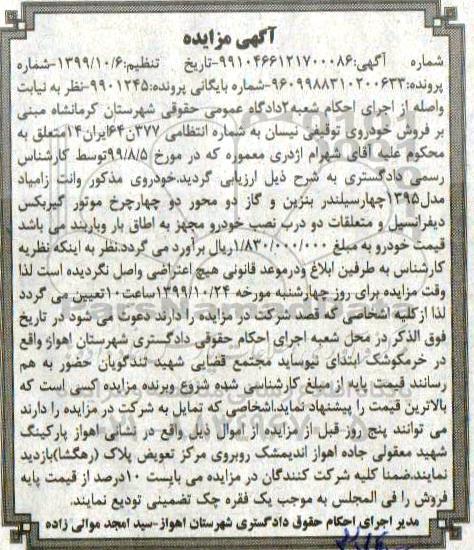 آگهی مزایده
شماره آگهی:9910466121700086-تاریخ تنظیم:1399/10/6-شماره
پرونده:9609988310200633-شماره بایگانی پرونده:9901245-نظر به نیابت
واصله از اجرای احکام شعبه2دادگاه عمومی حقوقی شهرستان کرمانشاه مبنی
بر فروش خودروی توقیفی نیسان به شماره انتظامی 377ن64ایران14متعلق به
محکوم علیه آقای شهرام اژدری معموره که در مورخ 99/8/5توسط کارشناس
رسمی دادگستری به شرح ذیل ارزیابی گردید.خودروی مذکور وانت زامیاد
مدل1395چهارسیلندر بنزین و گاز دو محور دو چهارچرخ موتور گیربکس
دیفرانسیل و متعلقات دو درب نصب خودرو مجهز به اطاق بار وباربند می باشد
قیمت خودرو به مبلغ 1/830/000/000ریال برآورد می گردد.نظر به اینکه نظریه
کارشناس به طرفین ابلاغ ودرموعد قانونی هیچ اعتراضی واصل نگردیده است لذا
وقت مزایده برای روز چهارشنبه مورخه 1399/10/24ساعت10تعیین می گردد
لذا ازکلیه اشخاصی که قصد شرکت در مزایده را دارند دعوت می شود در تاریخ
فوق الذکر در محل شعبه اجرای احکام حقوقی دادگستری شهرستان اهواز واقع
در خرمکوشک ابتدای نیوساید مجتمع قضایی شهید تندگویان حضور به هم
رسانند قیمت پایه از مبلغ کارشناسی شده شروع وبرنده مزایده کسی است که
بالاترین قیمت را پیشنهاد نماید.اشخاصی که تمایل به شرکت در مزایده را دارند
می توانند پنج روز قبل از مزایده از اموال ذیل واقع در نشانی اهواز پارکینگ
شهید معقولی جاده اهواز اندیمشک روبروی مرکز تعویض پلاک (رهگشا)بازدید
نمایند.ضمنا کلیه شرکت کنندگان در مزایده می بایست 10درصد از قیمت پایه
فروش را فی المجلس به موجب یک فقره چک تضمینی تودیع نمایند.
مدیر اجرای احکام حقوق دادگستری شهرستان اهواز-سید امجد موالی زاده